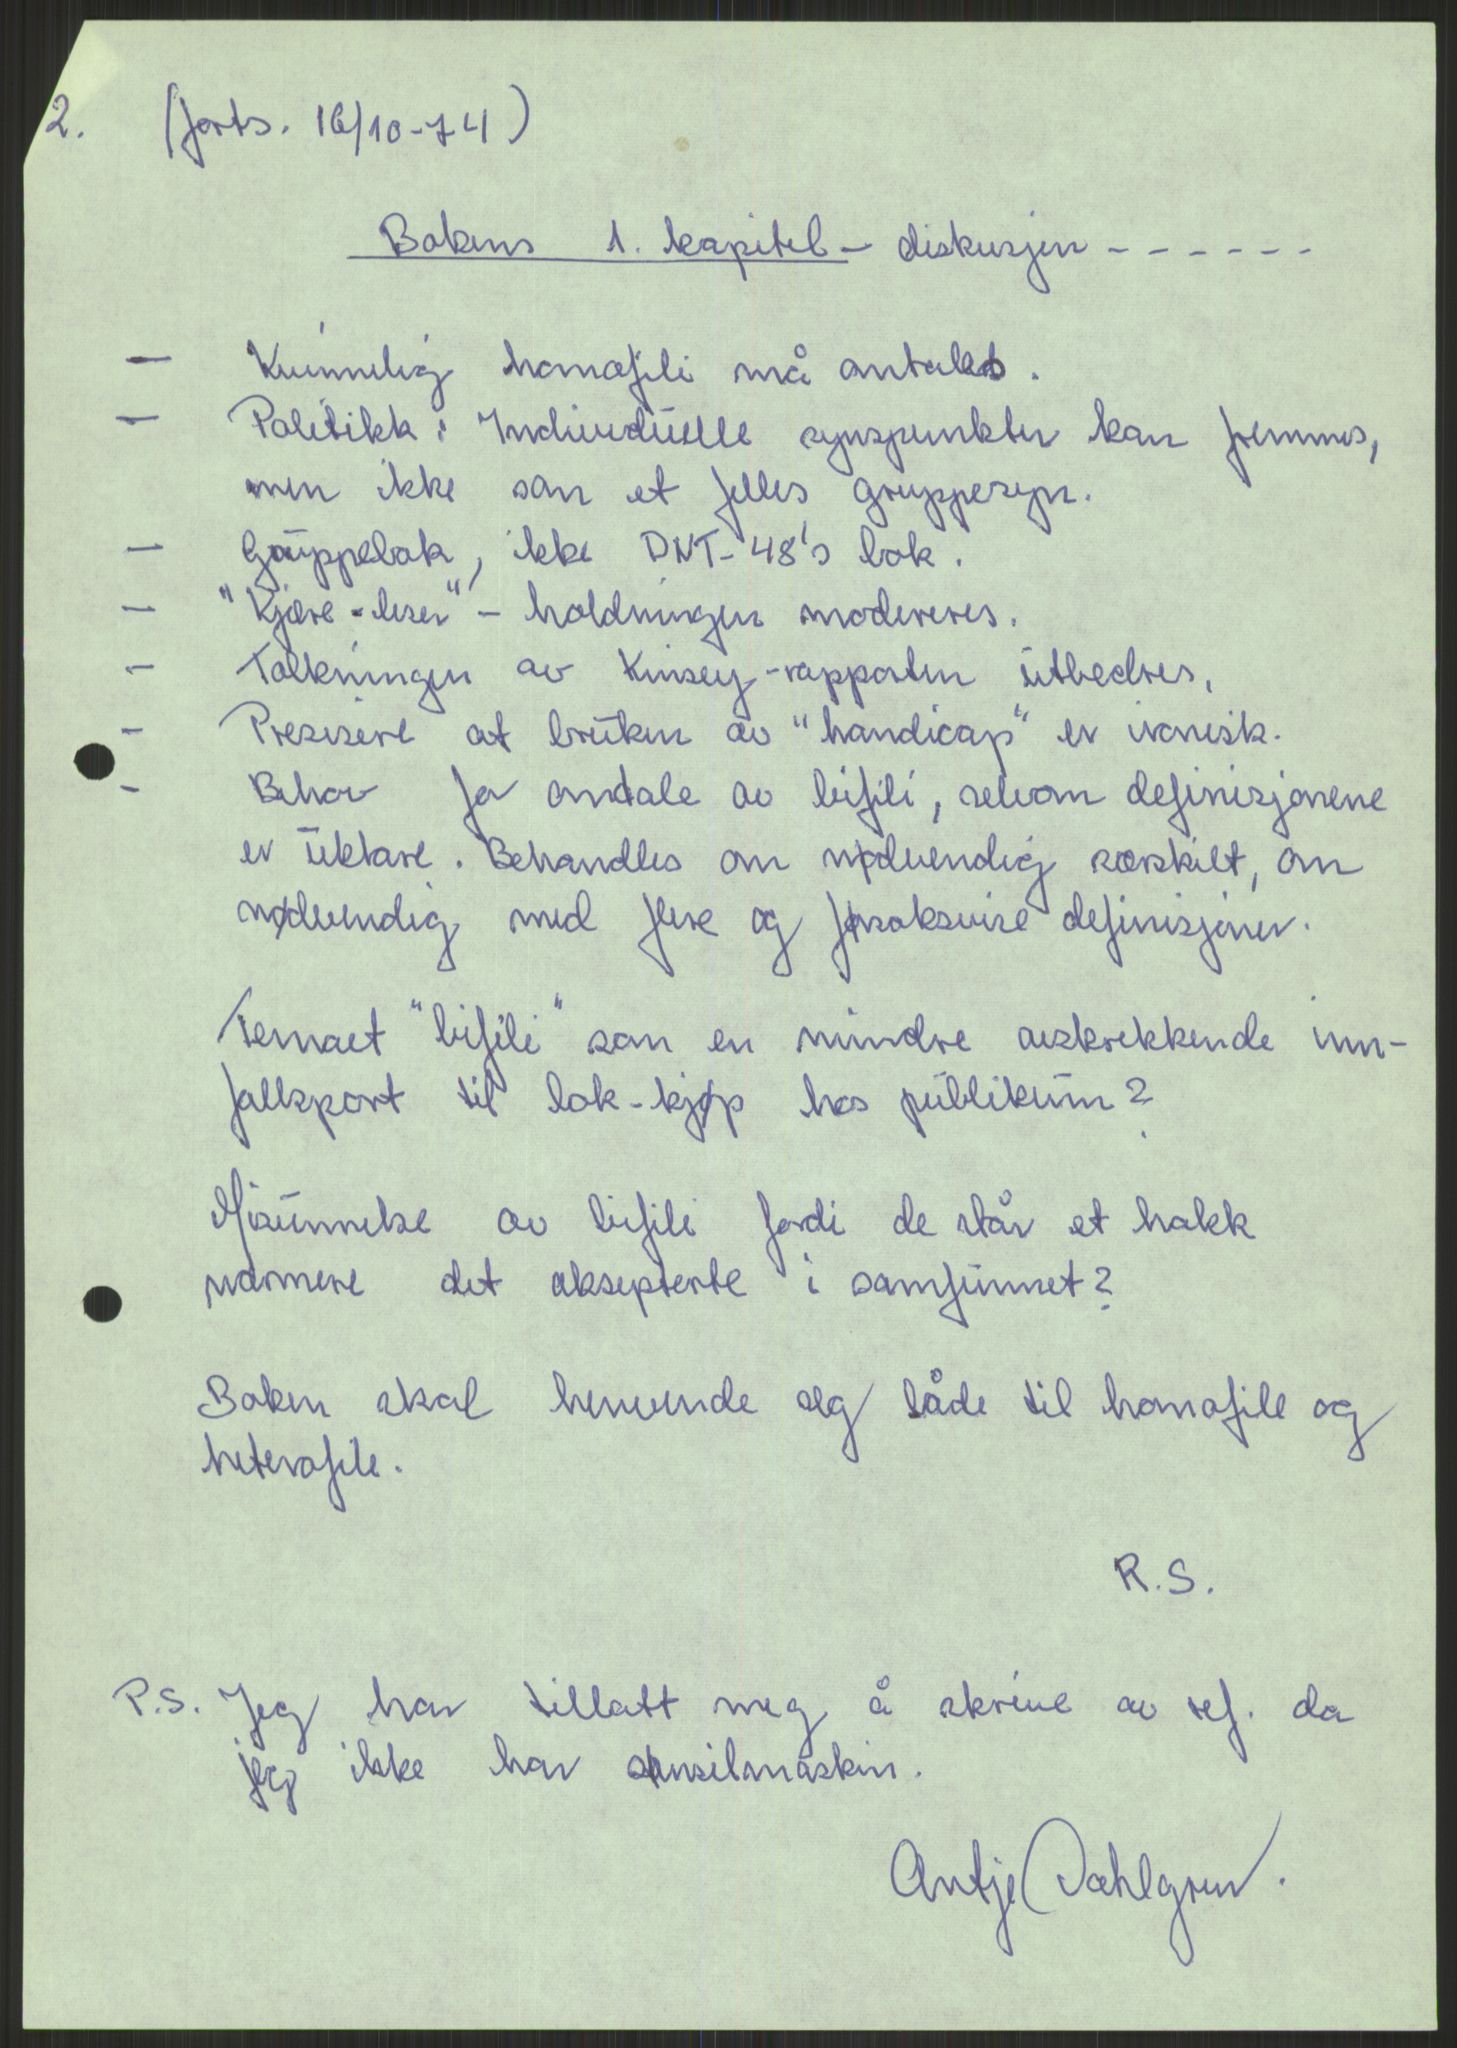 2. (forts. 16/10-74)
Bokens 1. kapitel – diskusjon - - - - - -
— Kvinnelig homofili må omtales.
— Politikk: Individuelle synspunkter kan fremmes,
men ikke som et felles gruppesyn.
— Gruppebok, ikke DNF-48's bok.
— "Kjære-leser"-holdningen modereres.
— Tolkningen av Kinsey-rapporten utbedres.
- Presisere at bruken av "handicap" er ironisk.
- Behov for omtale av bifili, selvom definisjonene
er uklare. Behandles om nødvendig særskilt, om
nødvendig med flere og forsøksvise definisjoner.
Temaet "bifili" som en mindre avskrekkende inn-
fallsport til bok-kjøp hos publikum?
Misunnelse av bifile fordi de står et hakk
nærmere det aksepterte i samfunnet?
Boken skal henvende seg både til homofile og
heterofile.
R.S.
P.S. Jeg har tillatt meg å skrive av ref. da
jeg ikke har stensilmaskin.
Antje Dahlgren.